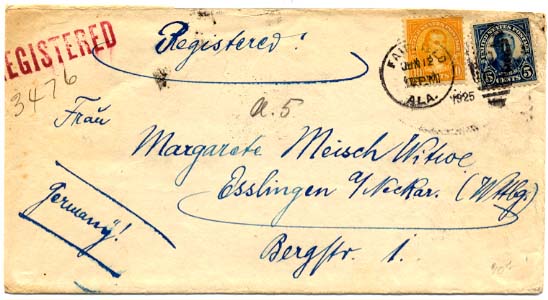 REGISTERED
3476
Registered!
FAIRFIELD
JUN 12
ALA.
1925
UNITED STATES POSTAGE
5 CENTS 5
a.5
Frau
Margarete Meisch Witwe
Esslingen a/Neckar. (Wttbg.)
Germany!
Bergstr. 1.